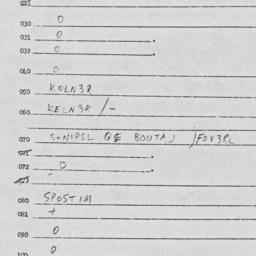 030 0
031 0
032 0
040 0
050 KOLN3R
060 KELN3R /-
070 S+NIPSL QE BOUTAJ /FOV3RL
072 0
080 SPOSTIM
081 +
090 0
100 0